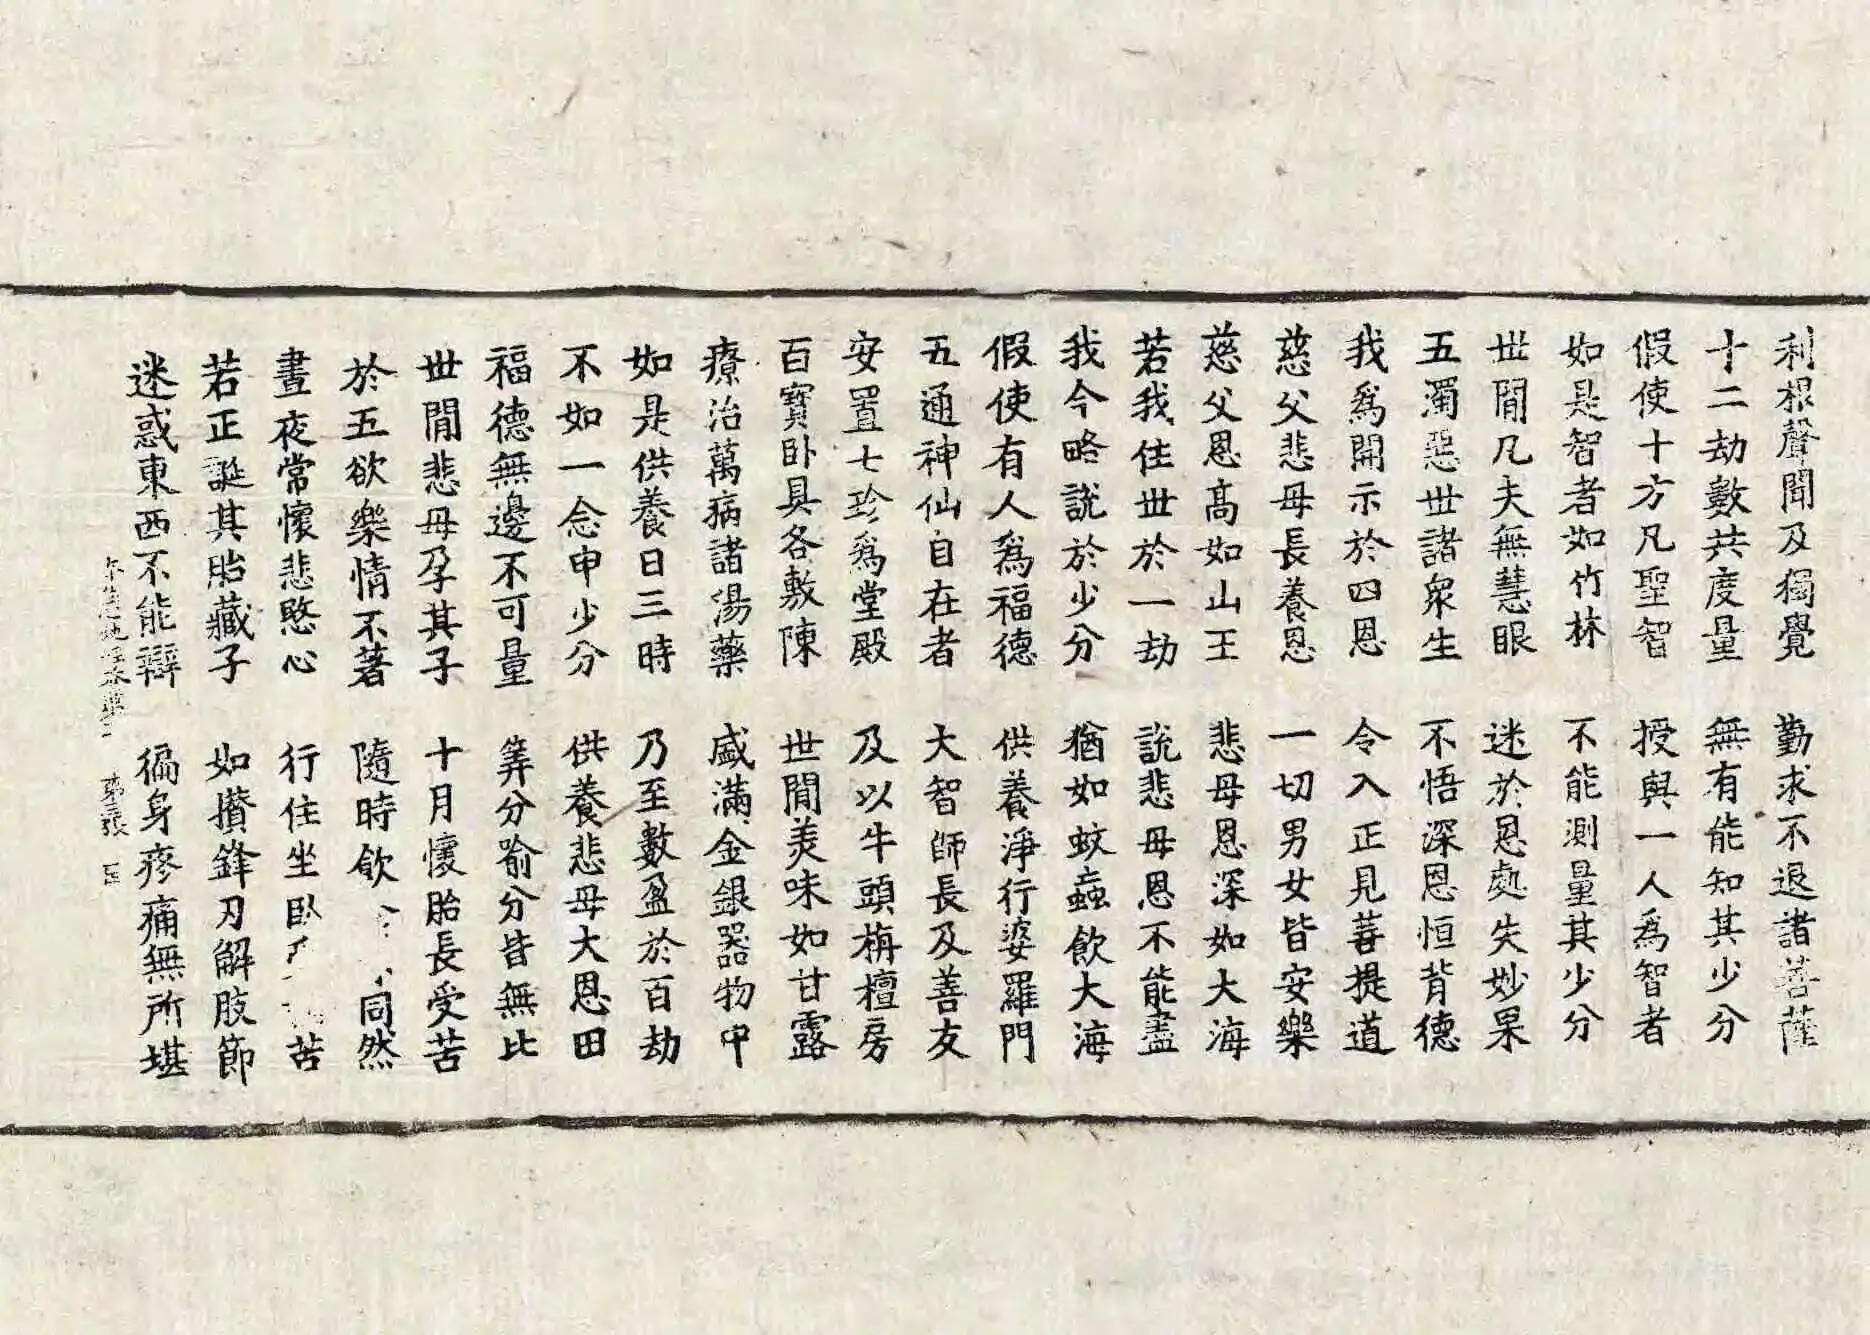 利根聲聞及獨覺 勤求不退諸菩薩
十二劫數共度量 無有能知其少分
假使十方凡聖智 授與一人爲智者
如是智者如竹林 不能測量其少分
世閒凡夫無慧眼 迷於恩處失妙果
五濁惡世諸衆生 不悟深恩恒背德
我爲開示於四恩 令入正見菩提道
慈父悲母長養恩 一切男女皆安樂
慈父恩高如山王 悲母恩深如大海
若我住世於一劫 說悲母恩不能盡
我今略說於少分 猶如蚊蟲飲大海
假使有人爲福德 供養淨行婆羅門
五通神仙自在者 大智師長及善友
安置七珍爲堂殿 及以牛頭栴檀房
百寶卧具各敷陳 世閒美味如甘露
療治萬病諸湯藥 盛滿金銀器物中
如是供養日三時 乃至數盈於百劫
不如一念申少分 供養悲母大恩田
福德無邊不可量 筭分喻分皆無比
世閒悲母孕其子 十月懷胎長受苦
於五欲樂情不著 隨時飲同然
晝夜常懷悲愍心 行住坐卧苦
若正誕其胎藏子 如攢鋒刃解肢節
迷惑東西不能辯 徧身疼痛無所堪